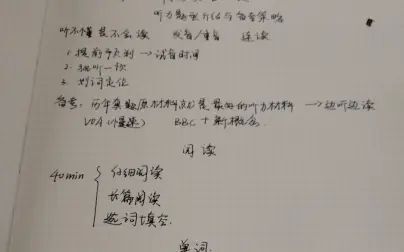 听力题型介绍与备考策略
听不懂是不会读 发音/重音 连读
1. 提前预判 → 试音时间
2. 视听一致
3. 划词定位
备考: 历年真题原材料就是最好的听力材料 → 边听边读
VOA(慢速) BBC + 新概念
阅读
40min { 仔细阅读
长篇阅读
选词填空
单词